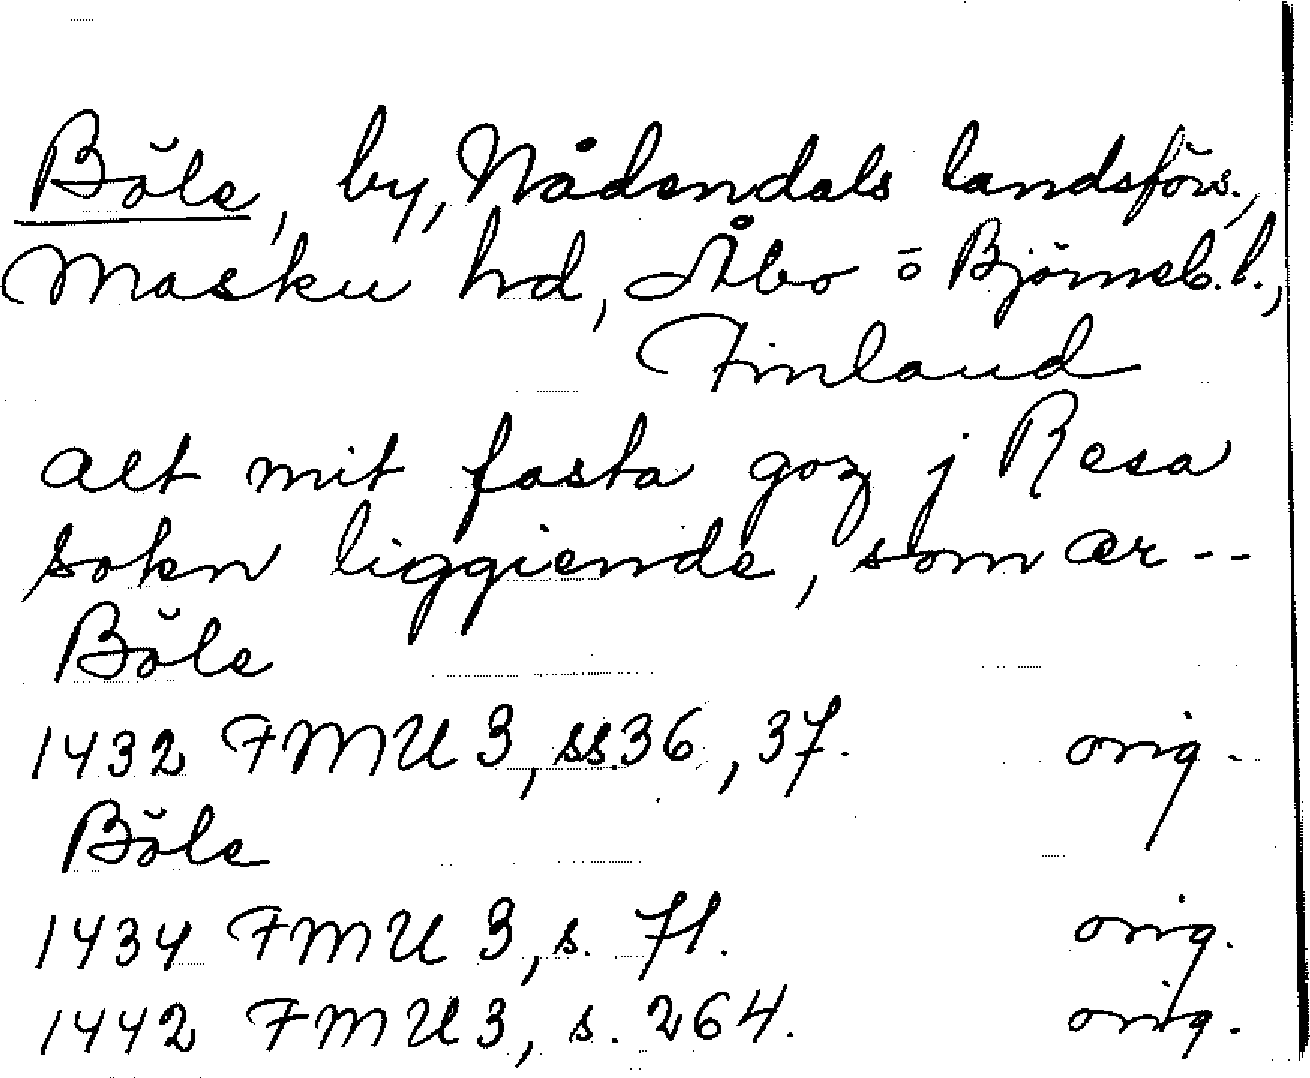 Böle, by, Nådendals landsförs.,
Masku hd, Åbo o Björneb. l.,
Finland
alt mit fasta goz j Resa
sokn liggiende, som ær --
Böle
1432 FMU 3, ss. 36, 37. orig.
Böle
1434 FMU 3, s. 71. orig.
1442 FMU 3, s. 264. orig.